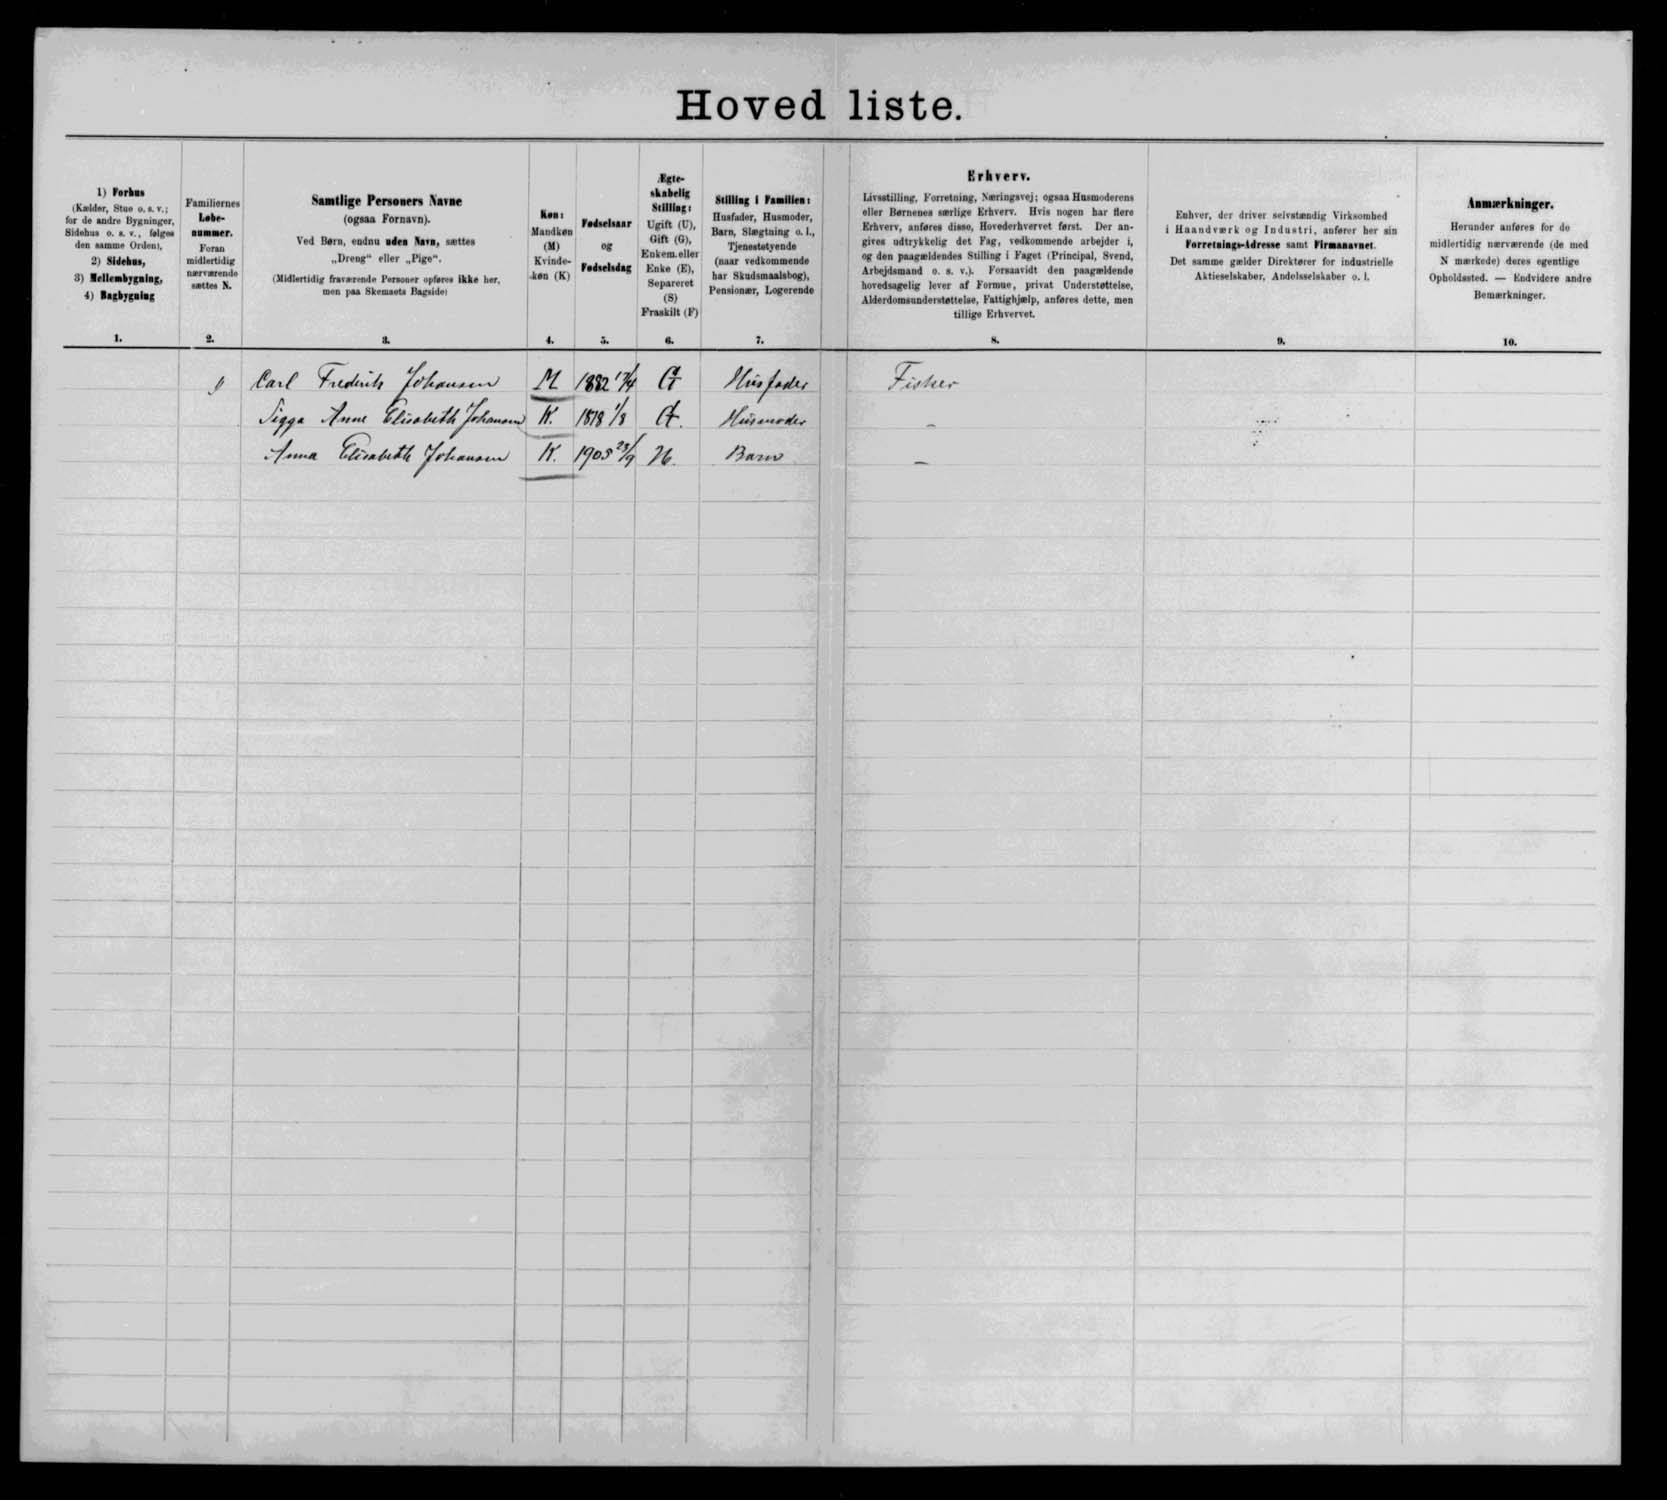 Hoved liste.
1) Forhus
(Kælder, Stue o. s. v.;
for de andre Bygninger,
Sidehus o. s. v., følges
den samme Orden),
2) Sidehus,
3) Mellembygning,
4) Bagbygning
1.
Familiernes
Løbe-
nummer.
Foran
midlertidig
nærværende
sættes N.
2.
Samtlige Personers Navne
(ogsaa Fornavn).
Ved Børn, endnu uden Navn, sættes
„Dreng“ eller „Pige“.
(Midlertidig fraværende Personer opføres ikke her,
men paa Skemaets Bagside)
3.
Køn:
Mandkøn
(M)
Kvinde-
køn (K)
4.
Fødselsaar
og
Fødselsdag
5.
Ægte-
skabelig
Stilling:
Ugift (U),
Gift (G),
Enkem. eller
Enke (E),
Separeret
(S)
Fraskilt (F)
6.
Stilling i Familien:
Husfader, Husmoder,
Barn, Slægtning o. l.,
Tjenestetyende
(naar vedkommende
har Skudsmaalsbog),
Pensionær, Logerende
7.
Erhverv.
Livsstilling, Forretning, Næringsvej; ogsaa Husmoderens
eller Børnenes særlige Erhverv. Hvis nogen har flere
Erhverv, anføres disse, Hovederhvervet først. Der an-
gives udtrykkelig det Fag, vedkommende arbejder i,
og den paagældendes Stilling i Faget (Principal, Svend,
Arbejdsmand o. s. v.). Forsaavidt den paagældende
hovedsagelig lever af Formue, privat Understøttelse,
Alderdomsunderstøttelse, Fattighjælp, anføres dette, men
tillige Erhvervet.
8.
Enhver, der driver selvstændig Virksomhed
i Haandværk og Industri, anfører her sin
Forretnings-Adresse samt Firmanavnet.
Det samme gælder Direktører for industrielle
Aktieselskaber, Andelsselskaber o. l.
9.
Anmærkninger.
Herunder anføres for de
midlertidig nærværende (de med
N mærkede) deres egentlige
Opholdssted. — Endvidere andre
Bemærkninger.
10.
Carl Frederik Johansen M 1882 17/4 G Husfader Fisker
Sigga Anne Elisabeth Johansen K. 1878 1/8 G. Husmoder –
Anna Elisabeth Johansen K. 1905 23/9 U. Barn –